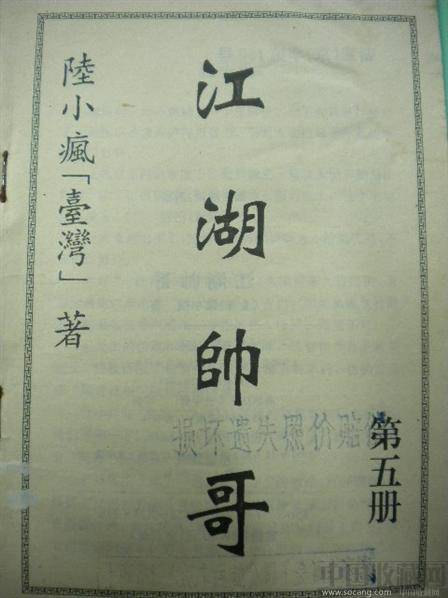 江湖帥哥
陸小瘋「臺灣」著
第五册
损坏遗失照价赔
中国收藏网
www.socang.com